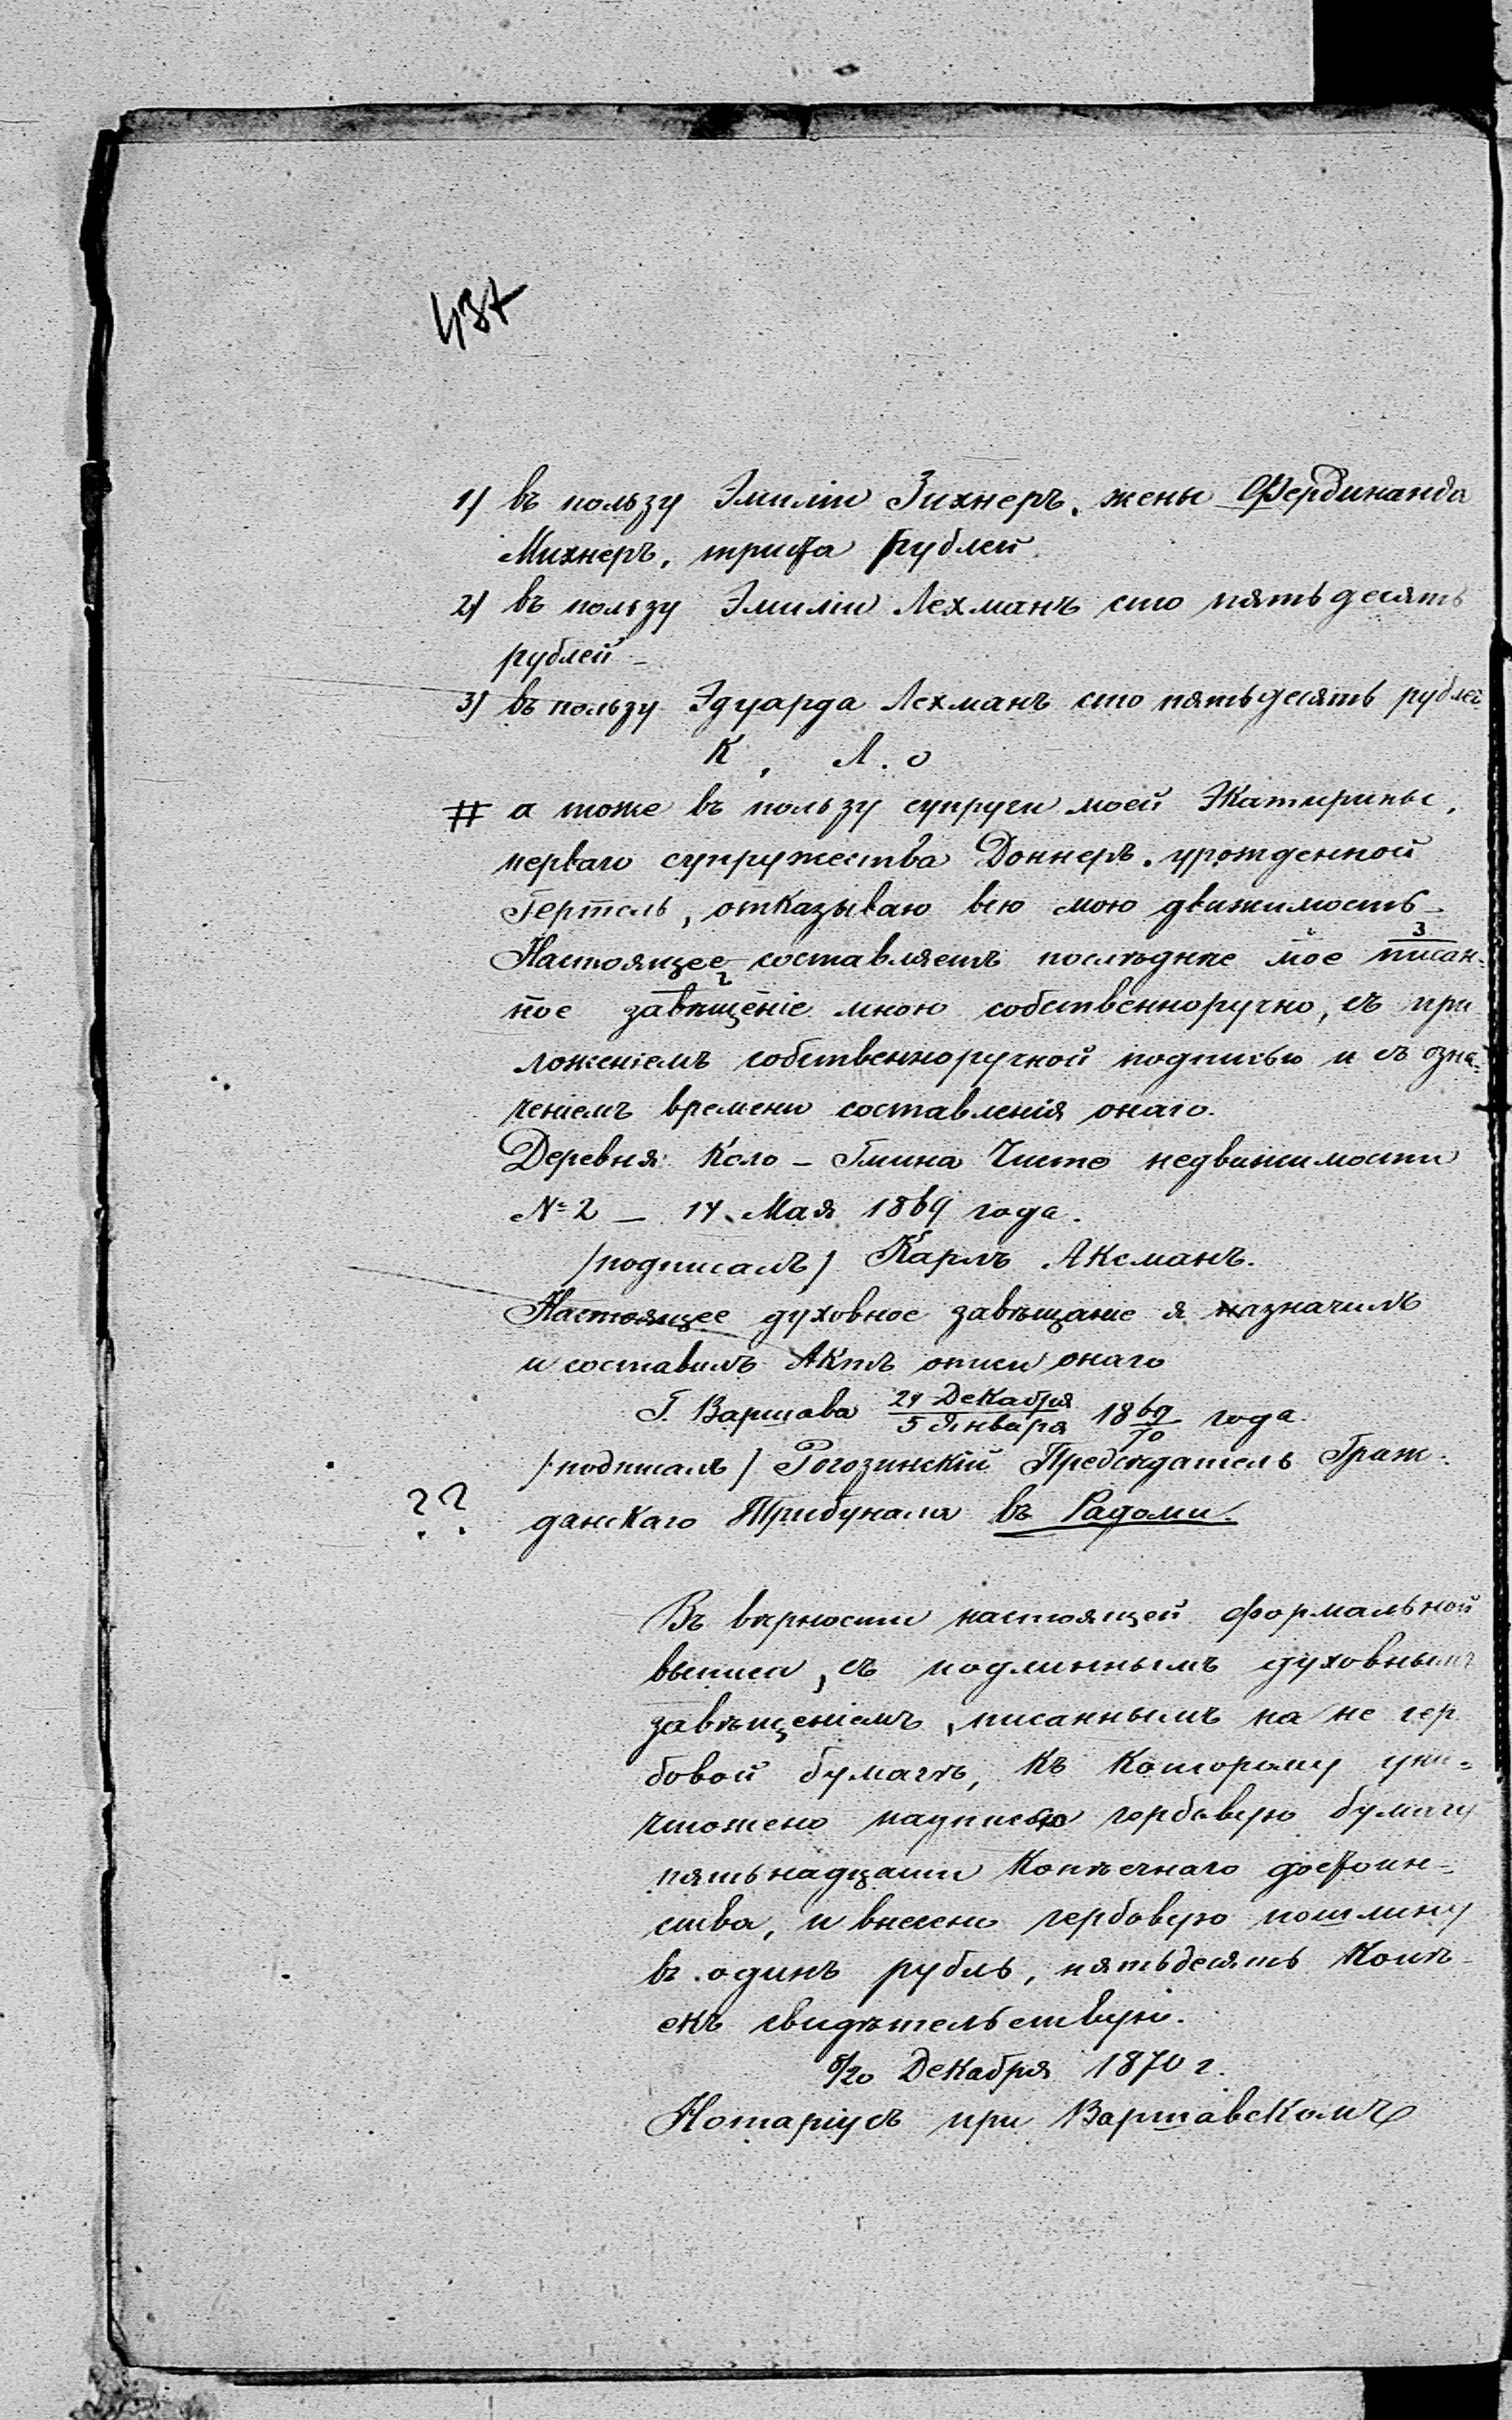 437
1) въ пользу Эмиліи Зихнеръ, жены Фердинанда
Михнеръ, триста рублей
2) въ пользу Эмиліи Лехманъ сто пятьдесять
рублей –
3) въ пользу Эдуарда Лехманъ сто пятьдесять рублей
К, Л. О
# а тоже въ пользу супруги моей Экатирины,
перваго супружества Доннеръ, урожденной
Гертель, отказываю всю мою движимость
3
Настоящее составляетъ послѣднее мое писан-
2
ное завѣщеніе мною собственноручно, съ при
ложеніемъ собственноручной подписью и съ озна-
ченіемъ времени составленія онаго.
Деревня Коло – Гмина Чисте недвижимости
№ 2 – 14 Мая 1869 года.
/подписалъ/ Карлъ Аксманъ.
Настоящее духовное завѣщаніе я назначилъ
и составилъ Актъ описи онаго
Г. Варшава 24 Декабря / 5 Января 1869/70 года.
/подписалъ/ Рогозинскій Предсѣдатель Граж-
?? данскаго Трибунала въ Радоми.
Въ вѣрности настоящей формальной
выписи, съ подлиннымъ духовнымъ
завѣщеніемъ, писаннымъ на не гер
бовой бумагѣ, къ которому уни-
чтожено надписью гербовую бумагу
пятьнадцати копѣечнаго достоин-
ства, и внесено гербовую пошлину
въ одинъ рубль, пятьдесять копѣ-
екъ свидѣтельствую.
8/20 Декабря 1870 г.
Нотаріусъ при Варшавскомъ